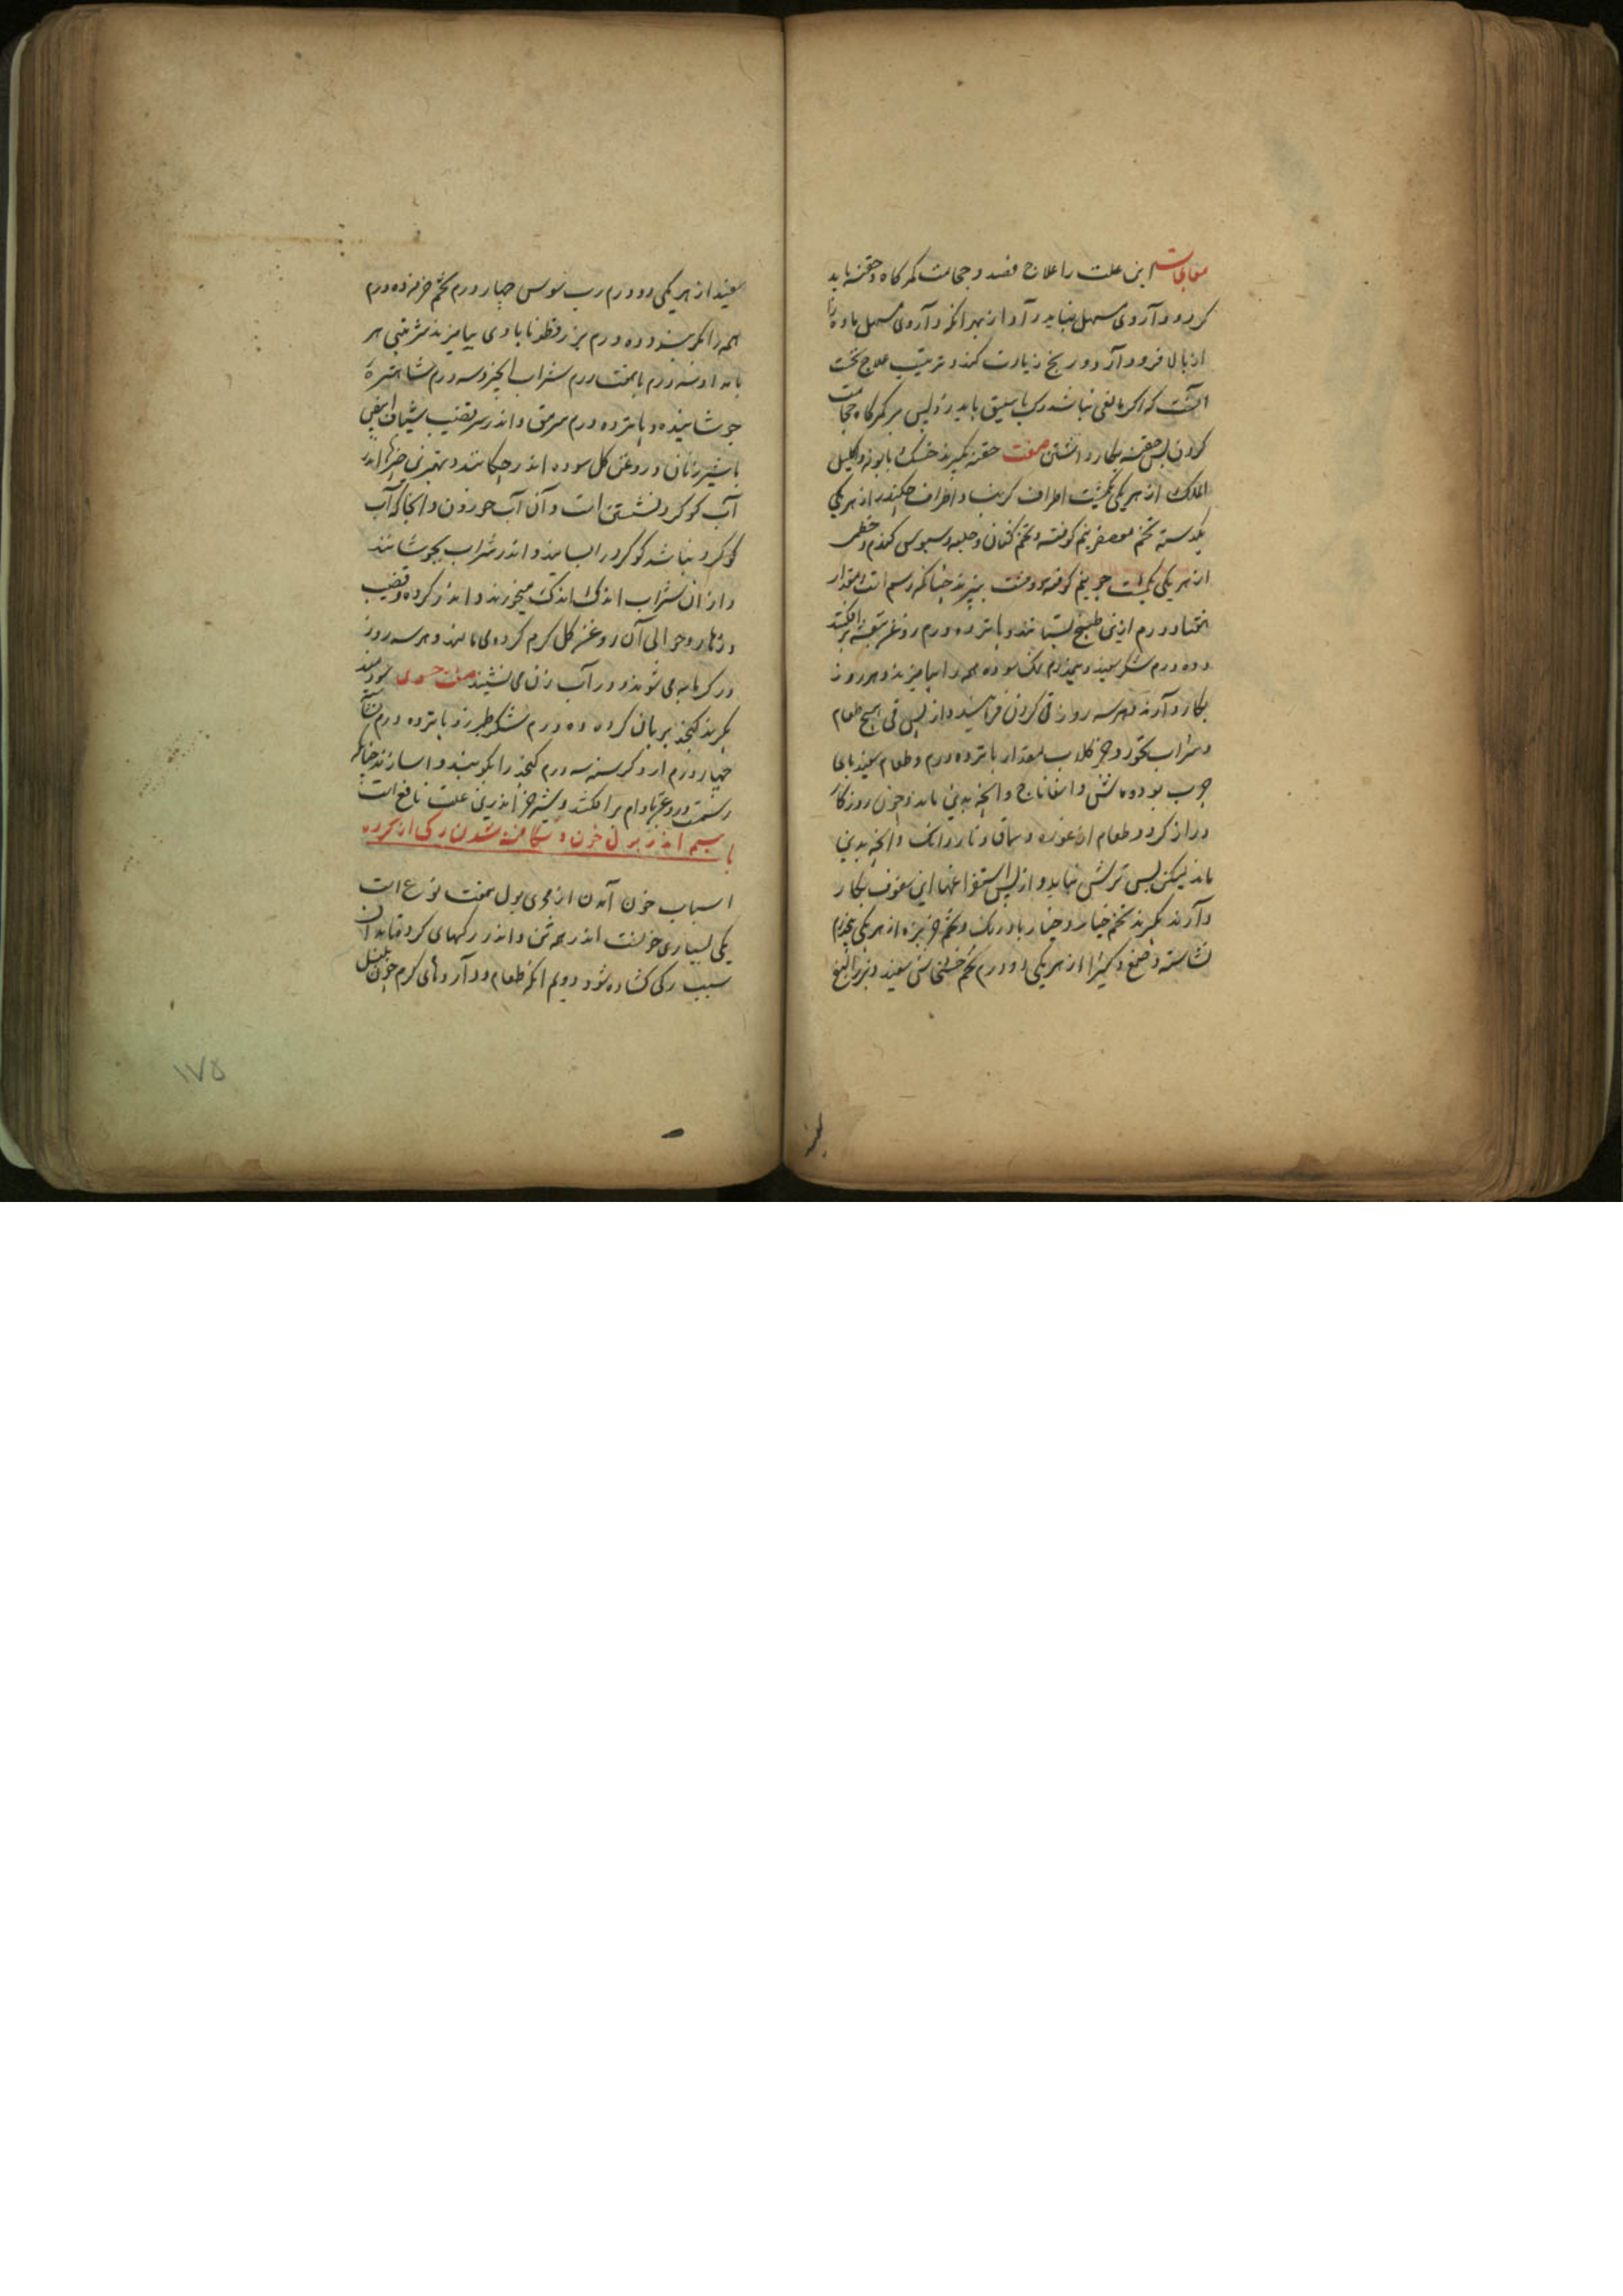 معالجات این علت را علاج فصد و حجامت کمرکاه و حقنه باید
کرد و داروی مسهل نباید داد از بهر انکه داروی مسهل ماده را
از بالا فرود آرد و رنج زیادت کند و ترتیب علاج نخست
آنست که اکر مانعی نباشد رک باسلیق باید زد پس بر کمرکاه حجامت
کردن پس حقنه بکار داشتن صفت حقنه بکیرند خسک بابونه و اکلیل
الملک از هر یکی یکمشت اطراف کرنب و اطراف چکندر از هر یکی
یکدسته تخم معصفر نیم کوفته و تخم کتان و حلبه و سبوس کندم و خطمی
از هر یکی یکمشت جو نیم کوفته دو مشت بپزند چنانکه رسم است مقدار
هفتاد درم ازین طبیخ بستانند و پانزده درم روغن بنفشه برافکنند
و ده درم شکر سفید و نیمدرم نمک سوده همه را بیامیزند و هر روز
بکار دارند و هر سه روز قی کردن فرمایند و از پس قی هیچ طعام
و شراب نخورد جز کلاب مقدار پانزده درم و طعام سفیدبای
چرب بود و ماش و اسفاناج و انچه بدین ماند و چون روزکار
دراز کردد طعام از غوره و سماق و ناردانک و انچه بدین
ماند لیکن بس ترش نباید و از پس استفراغها این سفوف بکار
دارند بکیرند تخم خیار و خیار بادرنک و تخم خربزه از هر یکی پنجدرم
نشاسته و صمغ و کتیرا از هر یکی دو درم تخم خشخاش سفید و بزر البنج
سفید از هر یکی دو درم رب سوس چهار درم تخم خرفه ده درم
همه را بکوبند و ده درم بزرقطونا با وی بیامیزند شربتی هر
بامداد سه درم یا هفت درم شراب الخبز و سه درم شاهتره
جوشانیده و پانزده درم سرمق و اندر سر قضیب شیاف ابیض
با شیر زنان و روغن کل سوده اندر چکانند و بهترین چیزها اندر
آب کوکرد نشستن است و آن آب خوردن و انجا که آب
کوکرد نباشد کوکرد را بسایند و اندر شراب بجوشانند
و از ان شراب اندک اندک میخورند و اندر کرده و قضیب
و زهار و حوالی آن روغن کل کرم کرده می مالند و هر سه روز
در کرمابه می شوند و در آب زن می نشینند صفت حسوی سودمند
بکیرند کنجد بریان کرده ده درم شکر طبرزد پانزده درم نشاسته
چهار درم ارد کرسنه سه درم کنجد را بکوبند و حسا سازند چنانکه
رسمست و روغن بادام برافکنند و شیر خر اندرین علت نافع است
باب سیم اندر بول خون و شکافته شدن رکی از کرده
اسباب خون آمدن از مجری بول هفت نوع است
یکی بسیاری خونست اندر همه تن و اندر رکهای کرده بدان
سبب رکی کشاده شود دویم انکه طعام و داروهای کرم چون پلپل
۱۷۵